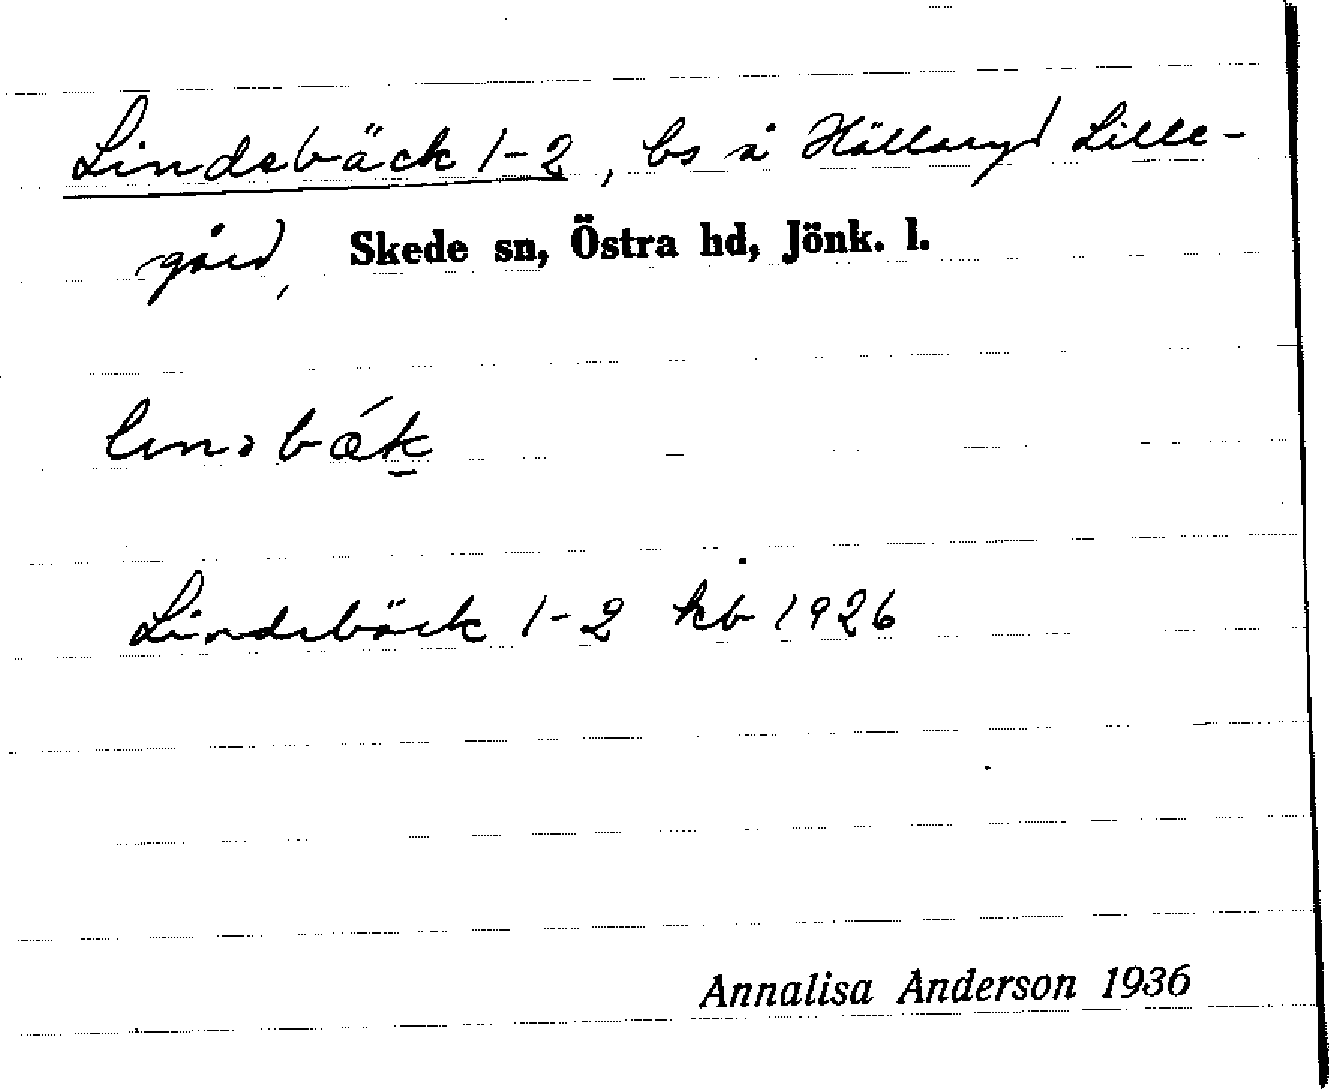 Lindsbäck 1-2, bs å Hällaryd Lille-
gård, Skede sn, Östra hd, Jönk. l.
Lindsbäck 1-2 kb 1926
Annalisa Anderson 1936